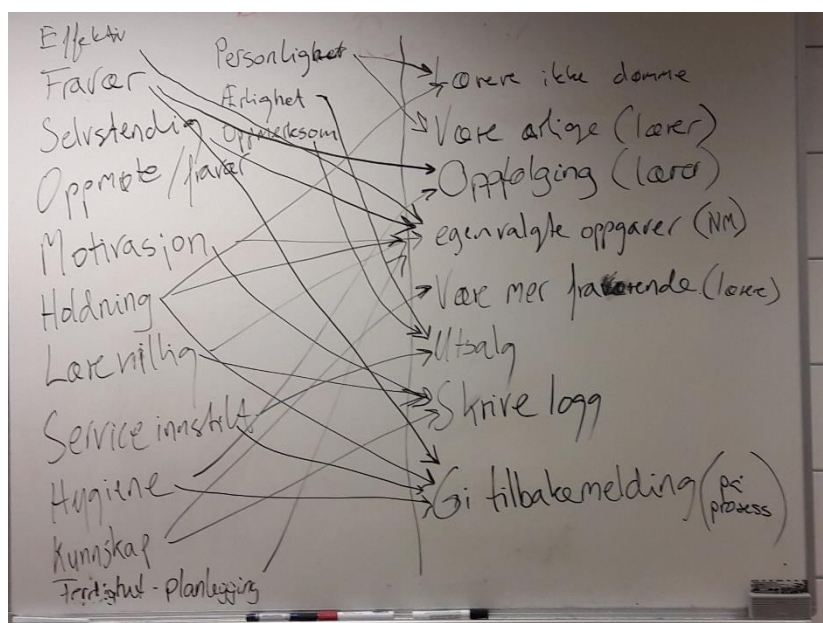 Effektiv
Fravær
Selvstendig
Oppmøte / fravær
Motivasjon
Holdning
Lærevillig
Service innstilt
Hygiene
Kunnskap
Ferdighet - planlegging
Personlighet
Ærlighet
Oppmerksom
Lærere ikke dømme
Være ærlige (lærer)
Oppfølging (lærer)
egenvalgte oppgaver (NM)
Være mer fraværende (lærer)
Utsalg
Skrive logg
Gi tilbakemelding (på
prosess)